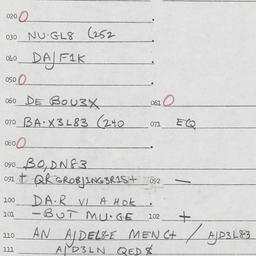 020 O
030 NU·GL8 (252
040 DA/F1K
050 O
060 DE BOU3X 061 O
070 BA·X3L83 (240 071 EQ
080 O
090 BO,DN83
091 + QRGROBJ1NG3R1S+ 092 —
100 DA·R VI A HOK.
101 -BUT MU·GE 102 +
110 AN A/DEL8F MENC+ / A/D3L83
111 A/D3LN QED8